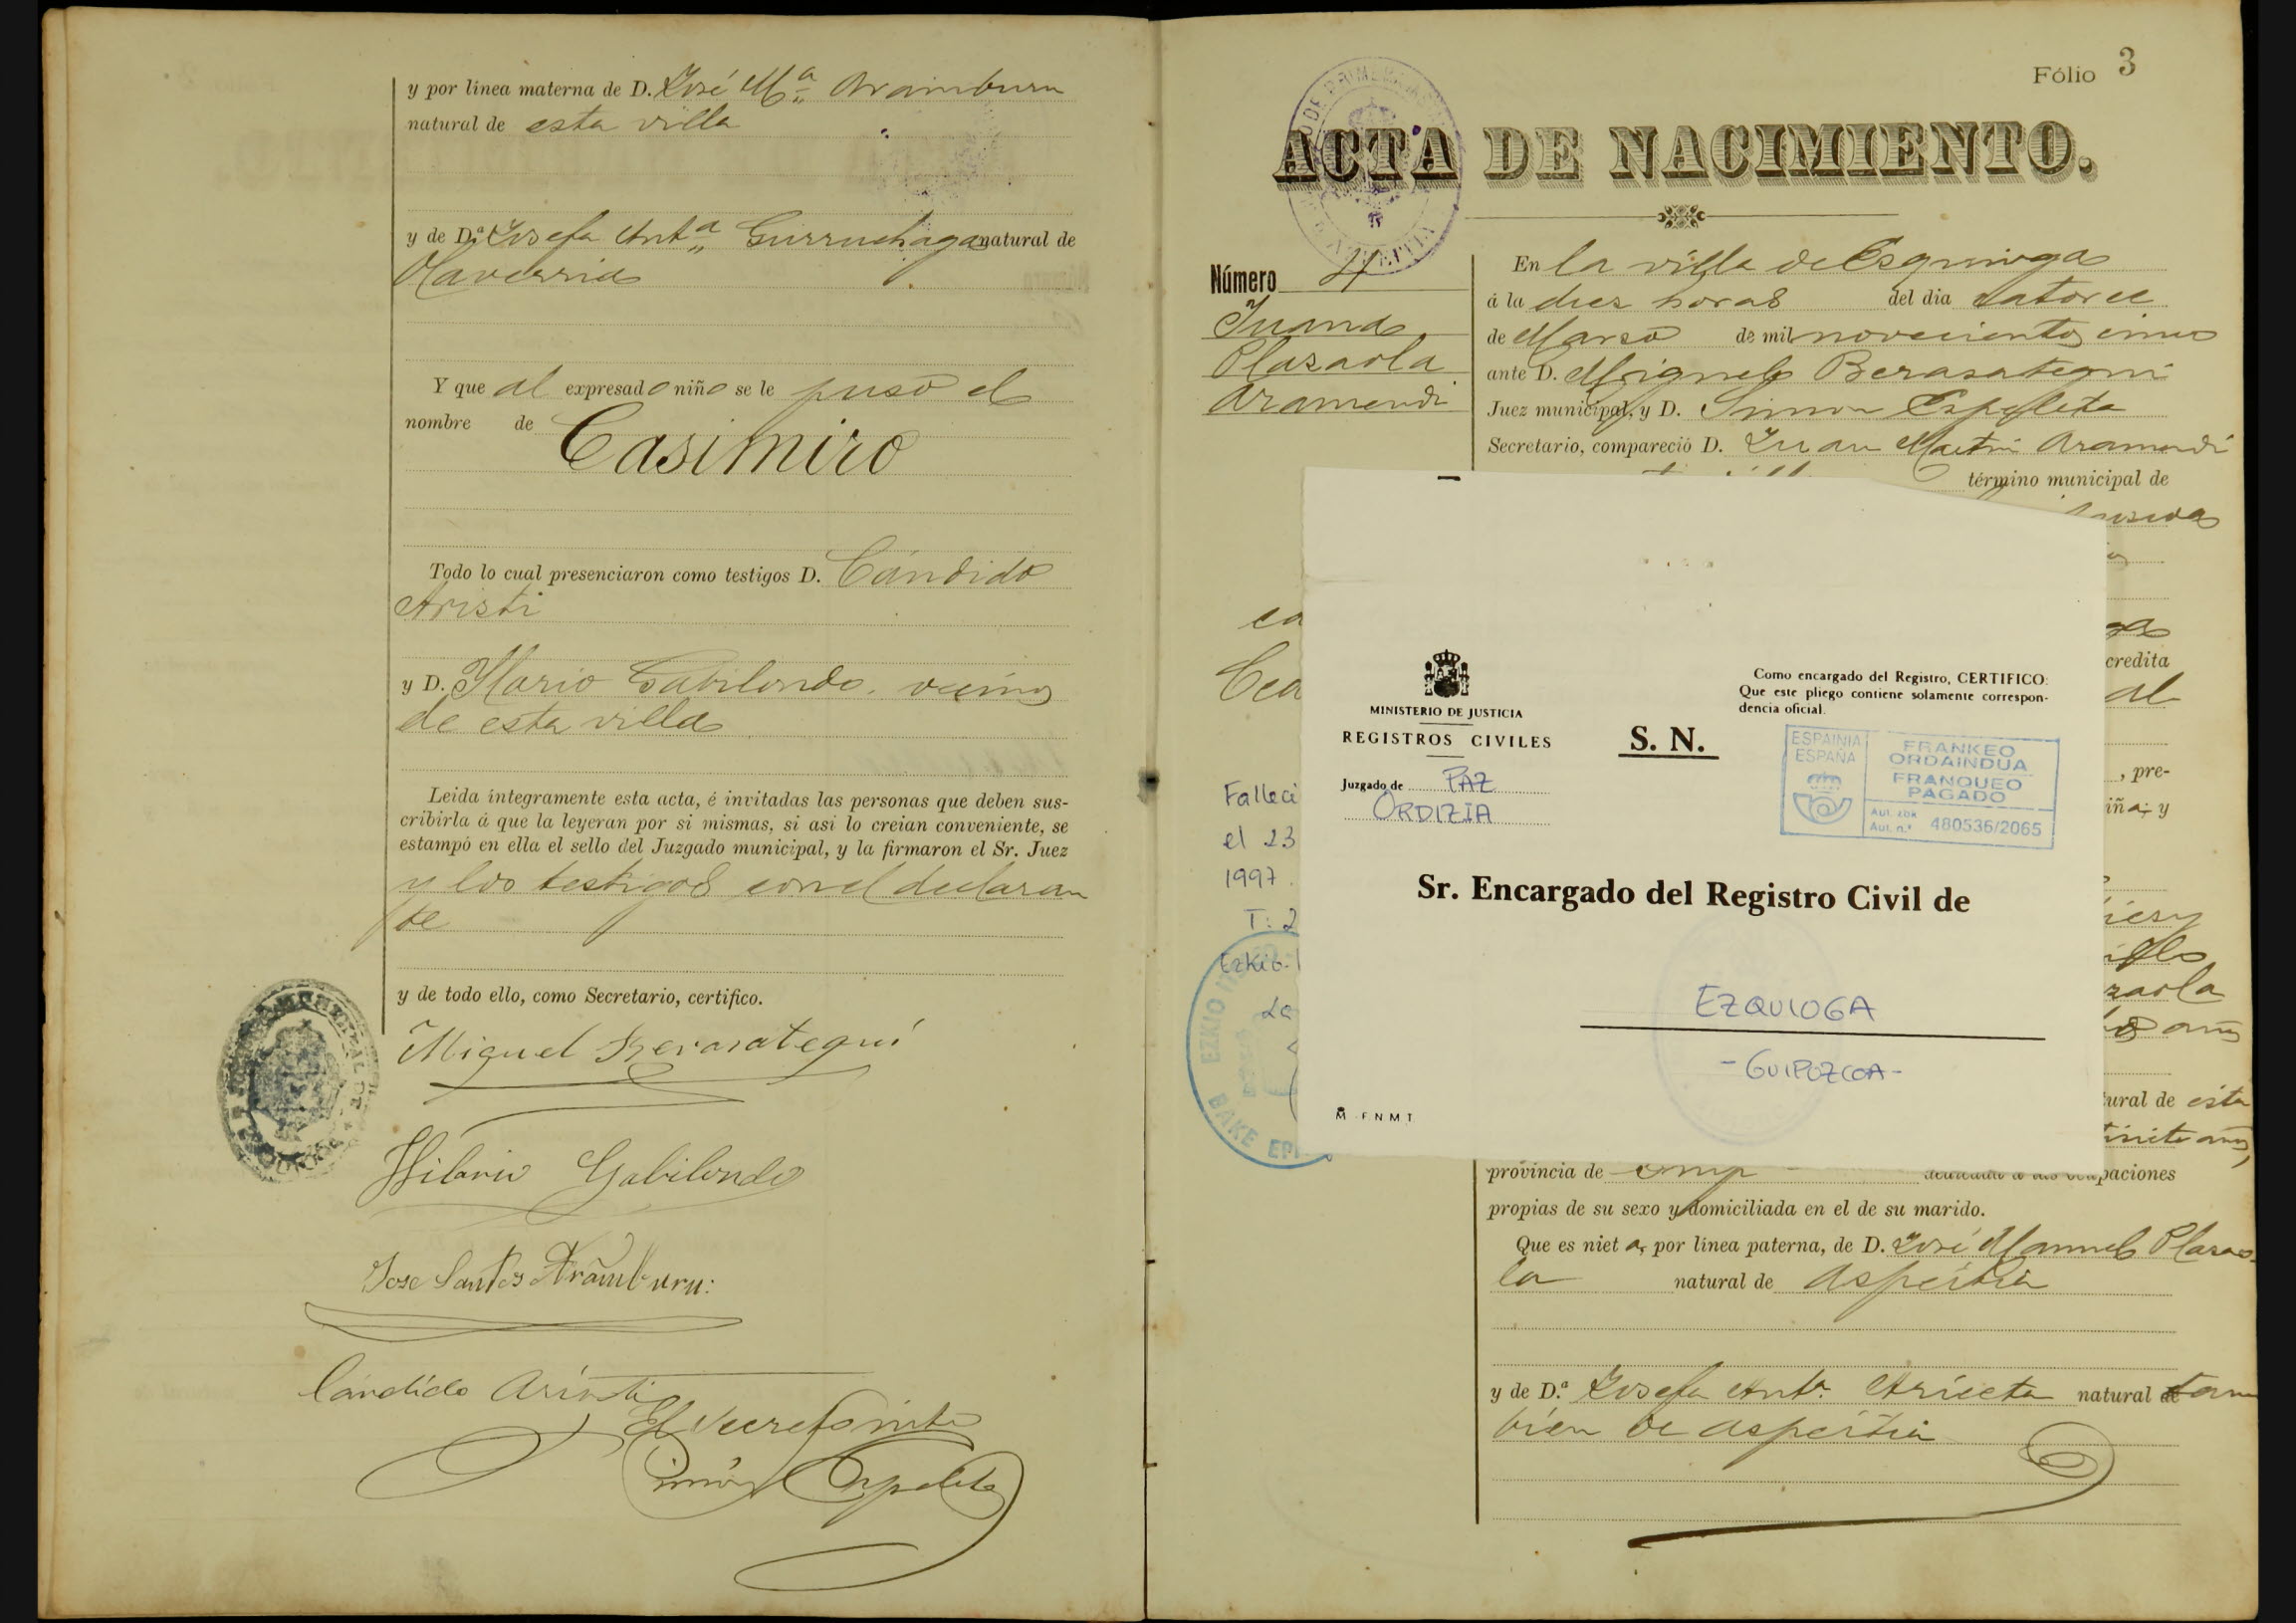 y por linea materna de D. José Mª Aramburu
natural de esta villa
y de D.ª Josefa Antª Gurruchaga natural de
Olaverria
Y que al expresado niño se le puso el
nombre de Casimiro
Todo lo cual presenciaron como testigos D. Cándido
Aristi
y D. Ylario Gabilondo, vecinos
de esta villa
Leida íntegramente esta acta, é invitadas las personas que deben sus-
cribirla á que la leyeran por si mismas, si asi lo creian conveniente, se
estampó en ella el sello del Juzgado municipal, y la firmaron el Sr. Juez
y los testigos con el declaran
te
y de todo ello, como Secretario, certifico.
Miguel Berasategui
Hilario Gabilondo
Jose Santos Aramburu:
Cándido Aristi
El Secretario
Simón Ezpeleta
Fólio 3
ACTA DE NACIMIENTO.
Número 4
Juana
Plazaola
Aramendi
En la villa de Esquioga
á la diez horas del dia catorce
de Marzo de mil novecientos cinco
ante D. Miguel Berasategui
Juez municipal, y D. Simon Ezpeleta
Secretario, compareció D. Juan Martin Aramendi
término municipal de
ca
Cea
credita
al
, pre-
iña; y
Falleci
el 23
1997.
T: 2
Ezkio-I
EZKIO
BAKE EPI
zaola
años
tural de esta
años,
provincia de
paciones
propias de su sexo y domiciliada en el de su marido.
Que es niet a, por linea paterna, de D. José Manuel Plazao
la natural de Aspeitia
y de D.ª Josefa Antª Arieta natural de tam
bien de Aspeitia
MINISTERIO DE JUSTICIA
REGISTROS CIVILES
Juzgado de PAZ
ORDIZIA
S. N.
Como encargado del Registro, CERTIFICO:
Que este pliego contiene solamente correspon-
dencia oficial.
ESPAINIA
ESPAÑA
FRANKEO
ORDAINDUA
FRANQUEO
PAGADO
Aut. zbk
Aut. n.º 480536/2065
Sr. Encargado del Registro Civil de
EZQUIOGA
- GUIPUZCOA -
F N M T